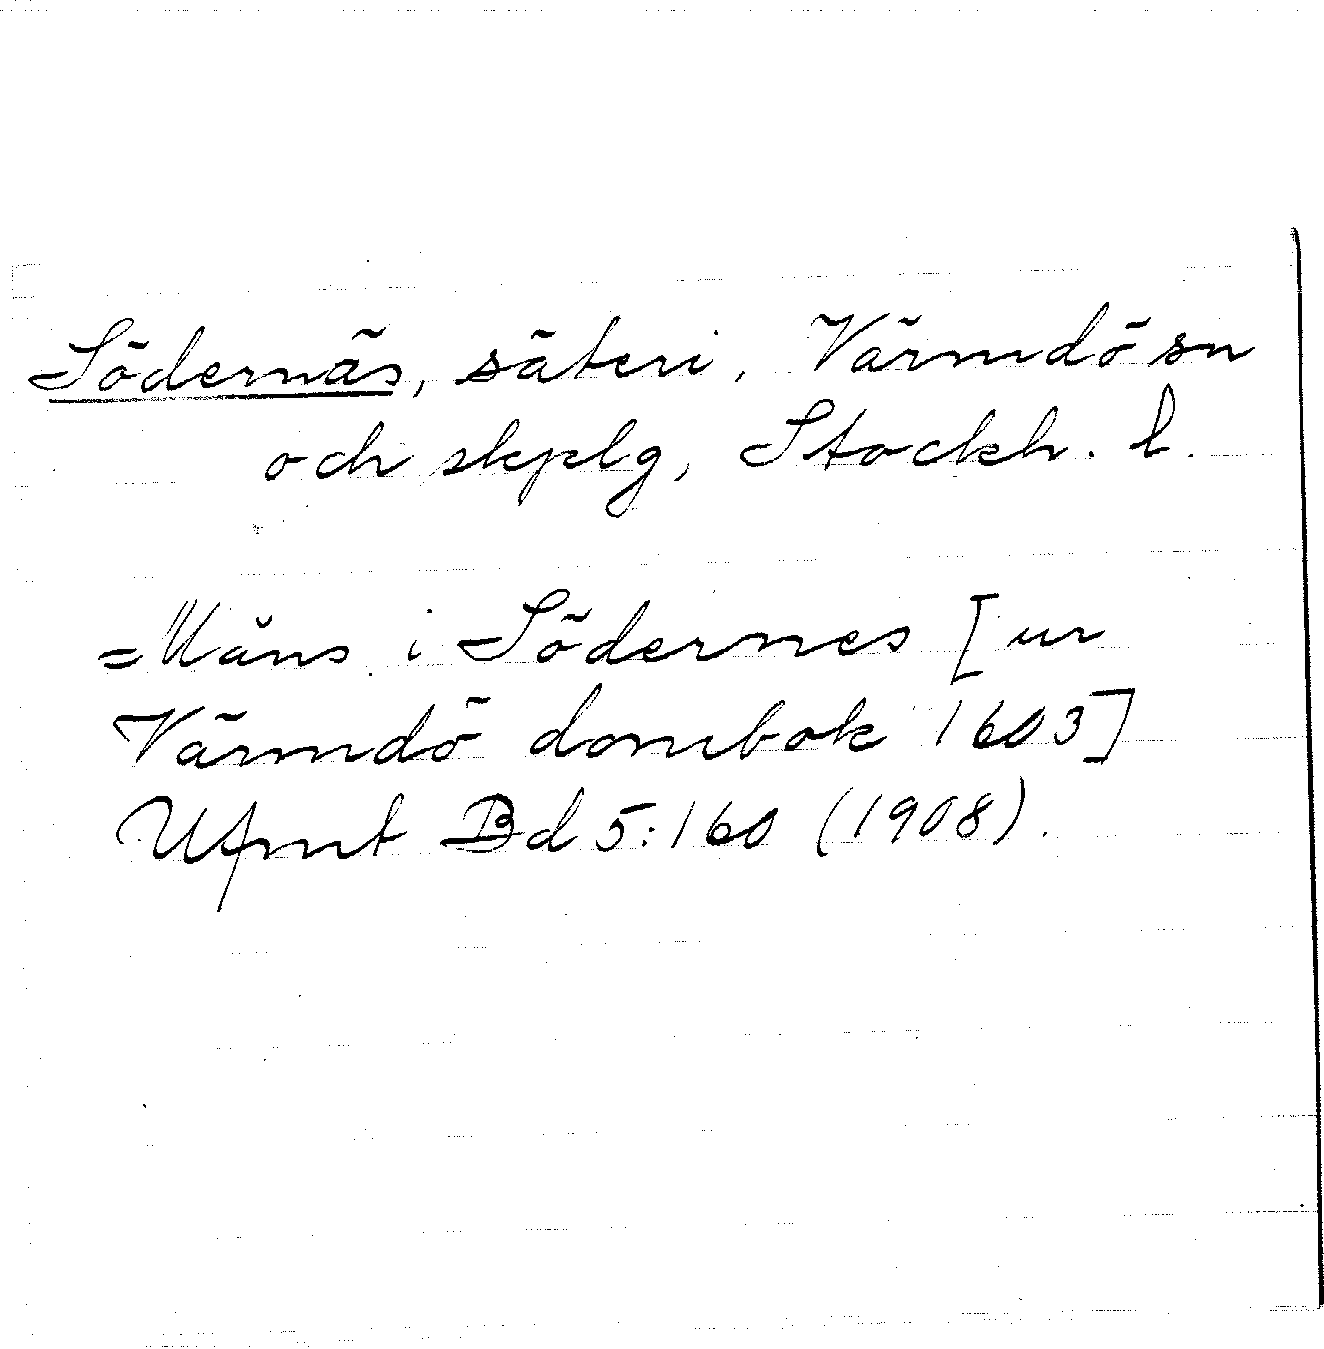 Södernäs, säteri, Värmdö sn
och skplg, Stockh. l.
=Måns i Södernes [ur
Värmdö dombok 1603]
Ufmt Bd 5:160 (1908).